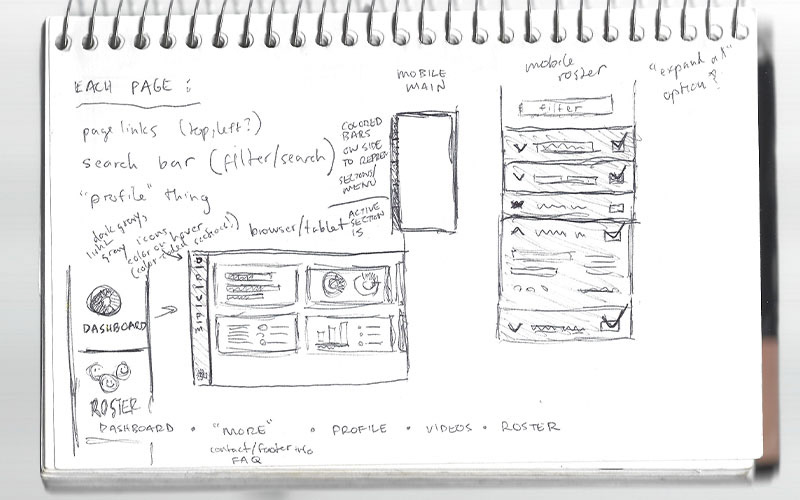 EACH PAGE :
page links (top, left?)
search bar (filter/search)
"profile" thing
dark gray,
gray icons,
color on hover
(color-coded sections?)
COLORED
BARS
ON SIDE
TO REPRE
SECTIONS/
MENU
ACTIVE
SECTION
IS
MOBILE
MAIN
mobile
roster
filter
"expand all"
option?
browser/tablet
DASHBOARD
ROSTER
DASHBOARD • "MORE" • PROFILE • VIDEOS • ROSTER
contact/footer info
FAQ